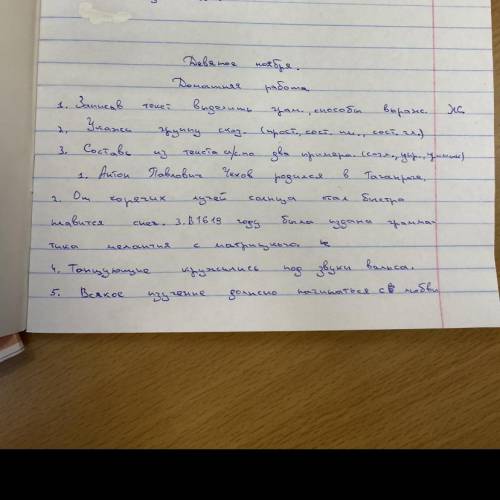 Девятое ноября.
Домашняя работа
1. Записав текст выделить грам. способы выраж.
2. Укажи группу сказ. (прост., сост. им., сост. гл.)
3. Составь из текста с/с по два примера. (согл., упр., примык)
1. Антон Павлович Чехов родился в Таганроге,
2. От горячих лучей солнца стал быстро
плавится снег. 3. В 1619 году была издана грамма-
тика мелантия с матрицкого.
4. Танцующие кружились под звуки вальса.
5. Всякое изучение должно начинаться с любви